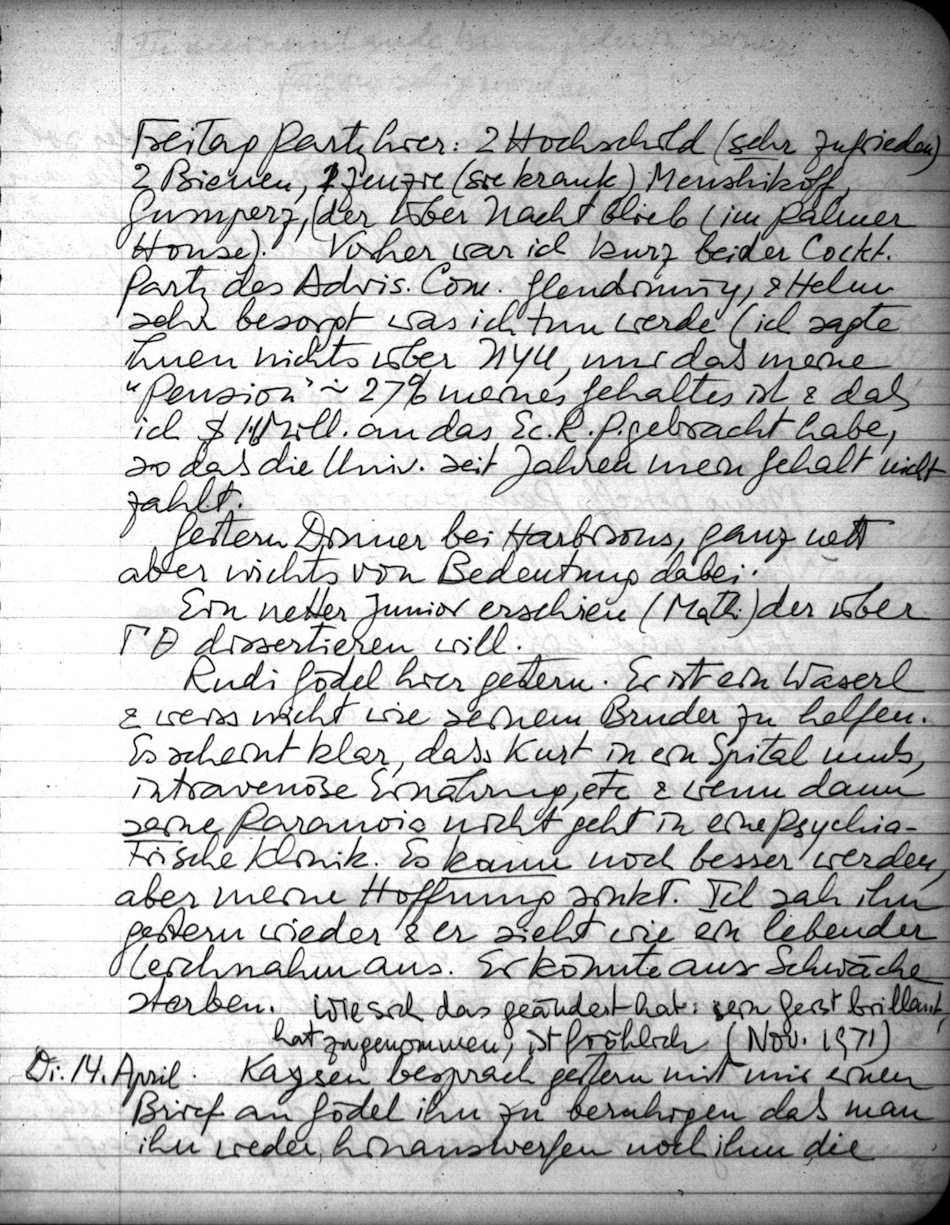 Freitag Party hier: 2 Hochschild (sehr zufrieden)
2 Bienen, 1 Jenzie (sie krank) Menshikoff,
Gumperz, (der über Nacht blieb (im Palmer
House). Vorher war ich kurz bei der Cockt.
Party des Advis. Com. Glendinning, & Helen
sehr besorgt was ich tun werde (ich sagte
ihnen nichts über NYU, nur das meine
"Pension" ~ 27% meines Gehaltes ist & daß
ich $ Mill. an das Ec. R. P. gebracht habe,
so daß die Univ. seit Jahren mein Gehalt nicht
zahlt.
Gestern Dinner bei Harbisons, ganz nett
aber nichts von Bedeutung dabei.
Ein netter Junior erschien (Math.) der über
ΓΘ dissertieren will.
Rudi Gödel hier gestern. Er ist ein Waserl
& weiss nicht wie seinem Bruder zu helfen.
Es scheint klar, dass Kurt in ein Spital muß,
intravenöse Ernährung, etc & wenn dann
seine Paranoia nicht geht in eine psychia-
trische Klinik. Es kann noch besser werden,
aber meine Hoffnung sinkt. Ich sah ihn
gestern wieder & er sieht wie ein lebender
Leichnahm aus. Er könnte aus Schwäche
sterben. Wie sich das geändert hat: sein Geist brillant,
hat zugenommen, ist fröhlich (Nov. 1971)
Di. 14. April. Kaysen besprach gestern mit mir einen
Brief an Gödel ihn zu beruhigen daß man
ihn weder hinauswerfen noch ihm die